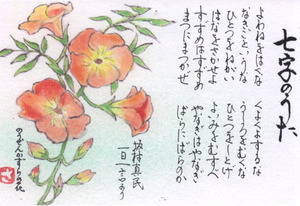 七字のうた
よわねをはくな
くよくよするな
なきごというな
うしろをむくな
ひとつをねがい
ひとつをしとげ
はなをさかせよ
よいみをむすべ
すずめはすずめ
やなぎはやなぎ
まつにまつかぜ
ばらにばらのか
坂村真民
一日一言より
のうぜんかずらの花